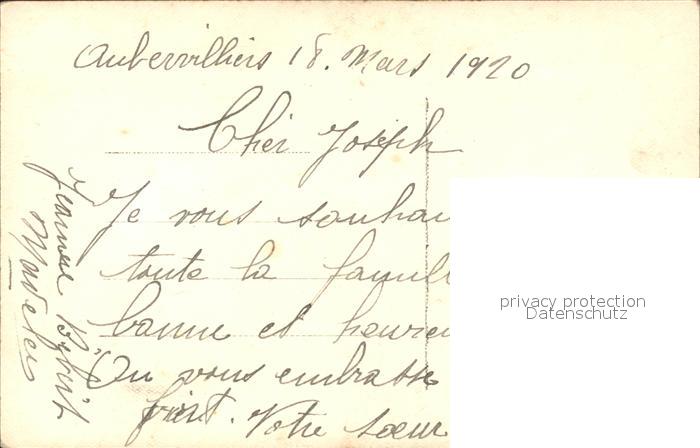 Aubervilliers 18. Mars 1920
Cher Joseph
Je vous souhai
toute la famil
bonne et heureu
On vous embrasse
fort. Votre sœur
Jeanne
privacy protection
Datenschutz